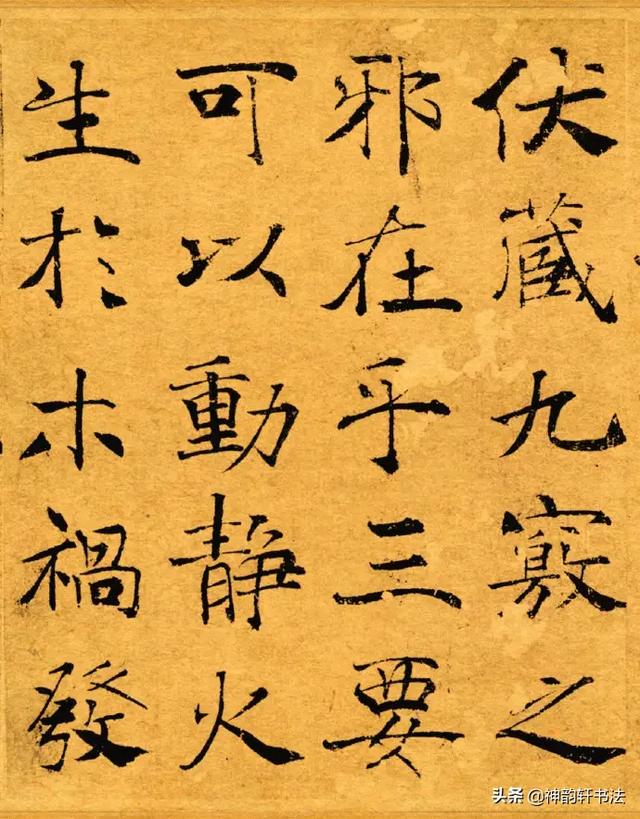 伏藏九竅之
邪在乎三要
可以動靜火
生於木禍發
头条 @神韵轩书法